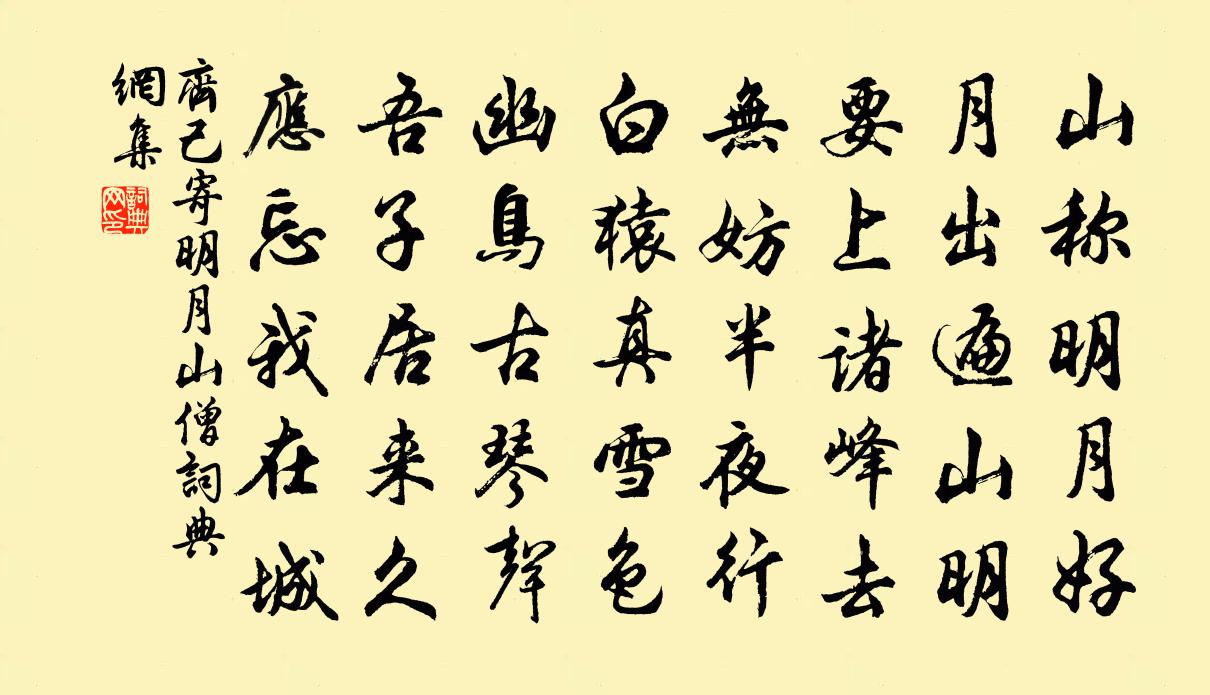 山称明月好
月出遍山明
要上诸峰去
無妨半夜行
白猿真雪色
幽鳥古琴聲
吾子居来久
應忘我在城
齊己寄明月山僧詞典
網集
詞典
网印